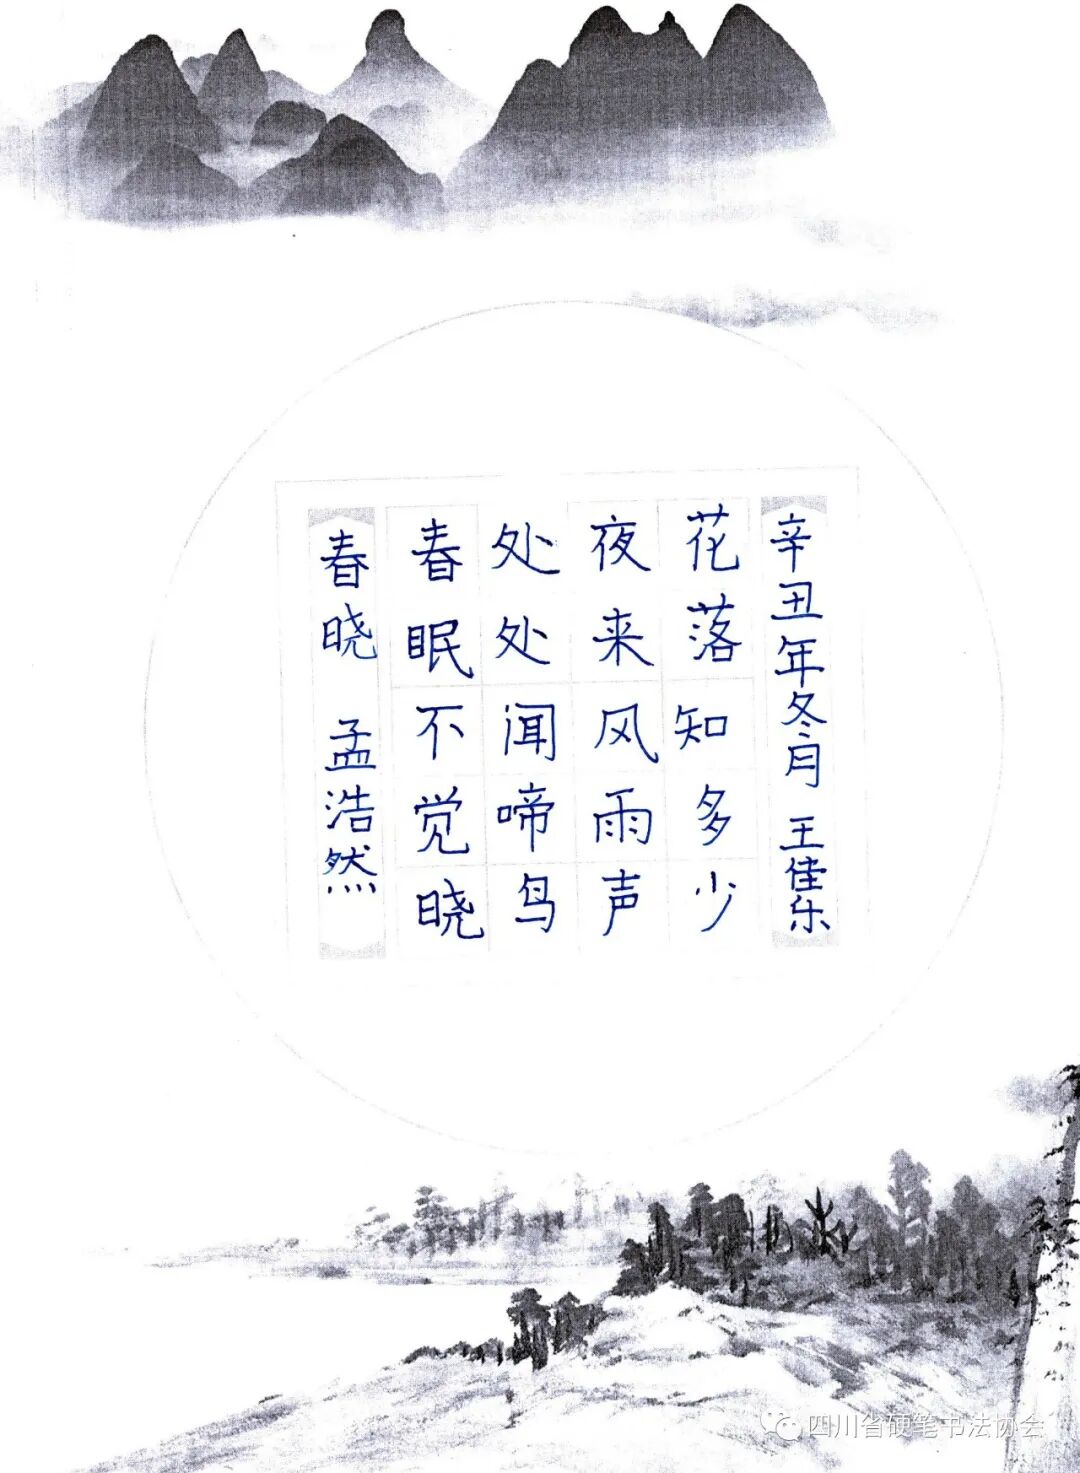 春晓 孟浩然
春眠不觉晓
处处闻啼鸟
夜来风雨声
花落知多少
辛丑年冬月 王佳乐
四川省硬笔书法协会